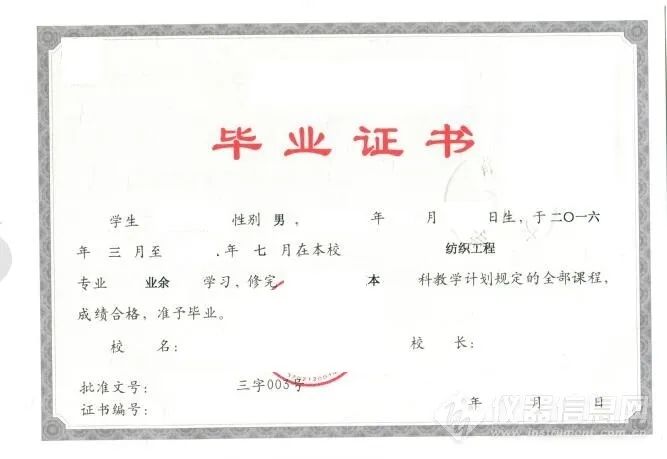 毕业证书
学生 性别 男， 年 月 日生，于二〇一六
年 三 月至 年 七 月在本校 纺织工程
专业 业余 学习，修完 本 科教学计划规定的全部课程，
成绩合格，准予毕业。
校 名： 校 长：
批准文号： 三字003号
证书编号： 年 月 日
仪器信息网
www.instrument.com.cn